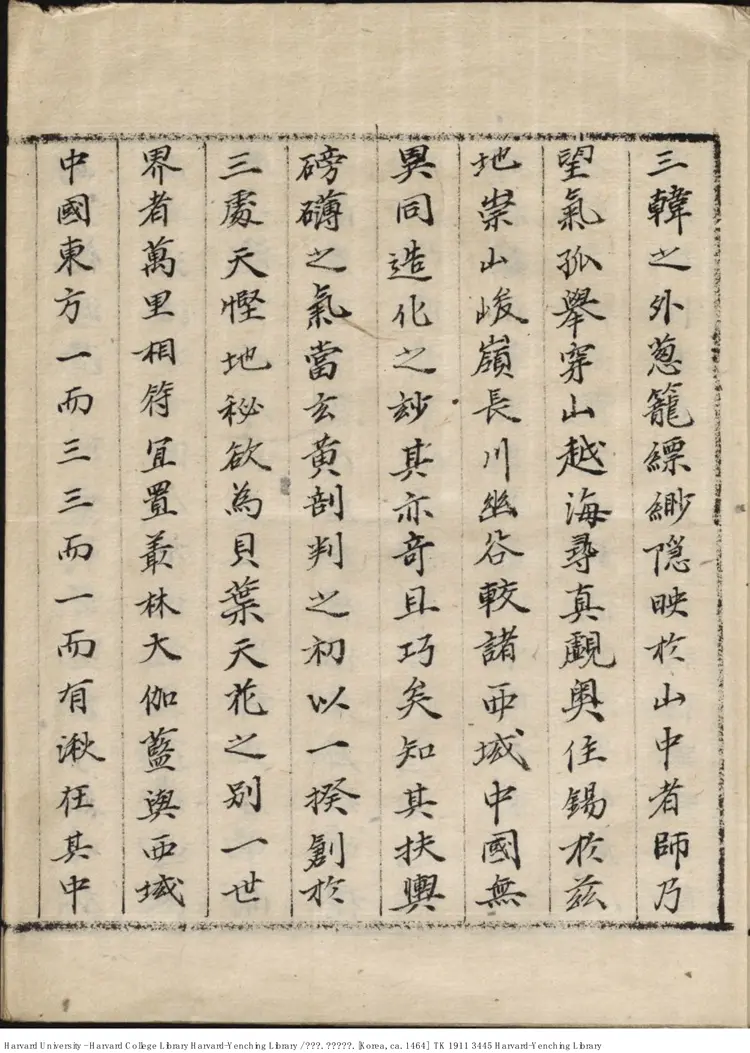 三韓之外葱籠縹緲隠映於山中者師乃
望氣孤舉穿山越海尋真覷奧住錫於兹
地崇山峻嶺長川幽谷較諸西域中國無
異同造化之玅其亦竒且巧矣知其扶輿
磅礴之氣當玄黄剖判之初以一揆創於
三處天慳地秘欲為貝葉天花之別一世
界者萬里相符宜置叢林大伽藍與西域
中國東方一而三三而一而有湫在其中
Harvard University - Harvard College Library Harvard-Yenching Library / ???. ?????. [Korea, ca. 1464] TK 1911 3445 Harvard-Yenching Library